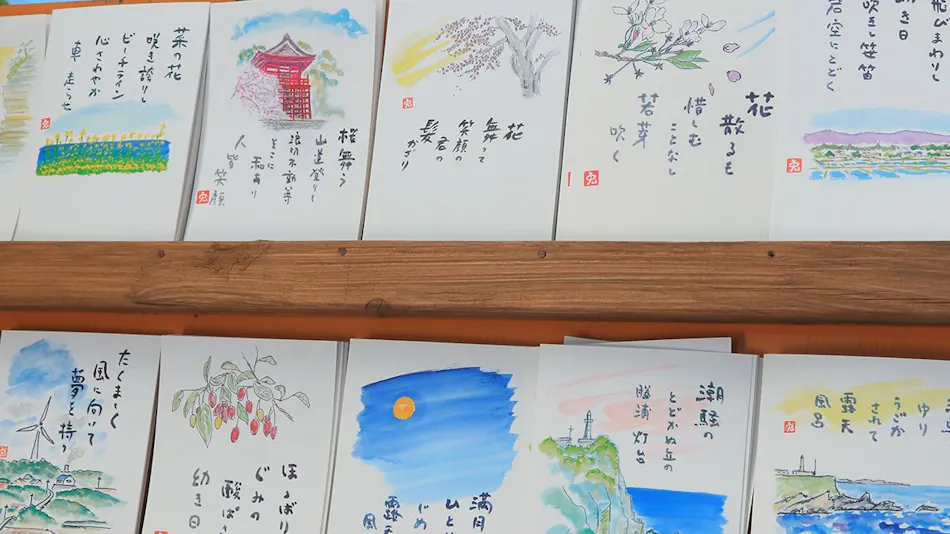 菜の花
咲き誇りし
ビーチライン
心さわやか
車 走らせ
桜舞う
山道登りし
浪切不動尊
そこに 和あり
人皆笑顔
花
舞って
笑顔の
君の
髪かざり
花
散るも
惜しむ
ことなし
若芽
吹く
まわりし
き日
吹きし笹笛
空にこどく
たくましく
風に向いて
夢を持つ
ほろばり
ぐみの
酸ぱさ
幼き日
満月
ひと
じめ
露天
風
潮騒の
とどかぬ丘の
勝浦灯台
ゆり
うごか
されて
露天
風呂